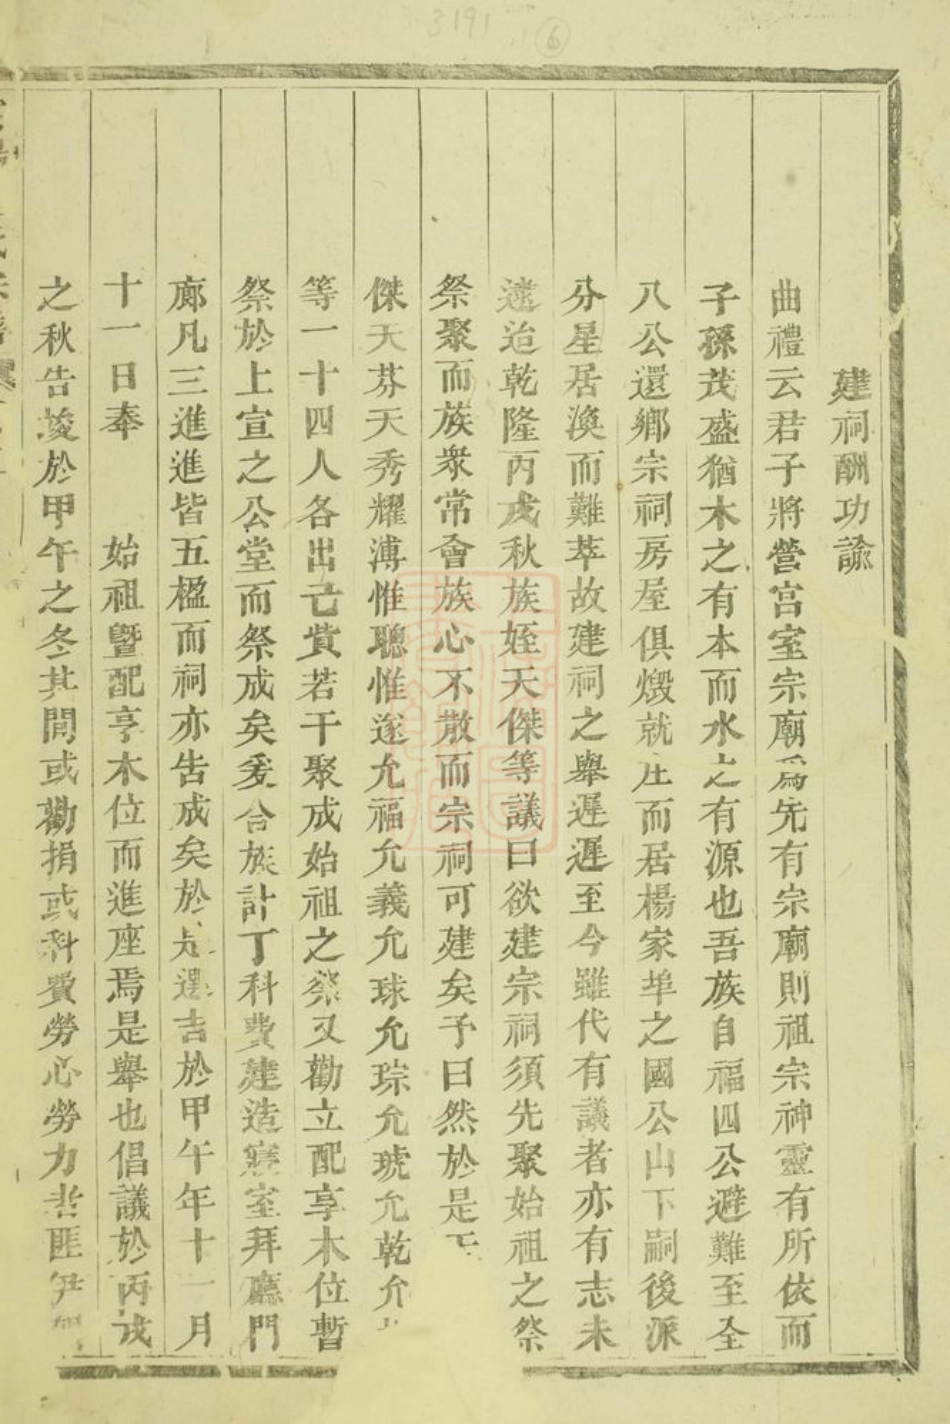 3191 6
建祠酬功諭
曲禮云君子將營宮室宗廟爲先有宗廟則祖宗神靈有所依而
子孫茂盛猶木之有本而水之有源也吾族自福四公避難至全
八公還鄉宗祠房屋俱燬就庄而居楊家埠之國公山下嗣後派
分星居渙而難萃故建祠之舉遲遲至今雖代有議者亦有志未
逮迨乾隆丙戌秋族姪天傑等議曰欲建宗祠須先聚始祖之祭
祭聚而族衆常會族心不散而宗祠可建矣予曰然於是天
傑天芬天秀耀溥惟聰惟遂允福允義允球允琮允琥允乾允
等一十四人各出己貲若干聚成始祖之祭又勸立配享木位暫
祭於上宣之公堂而祭成矣爰合族計丁科費建造寢室拜廳門
廊凡三進進皆五楹而祠亦告成矣於是選吉於甲午年十一月
十一日奉 始祖暨配享木位而進座焉是舉也倡議於丙戌
之秋告竣於甲午之冬其間或勸捐或科費勞心勞力者匪伊